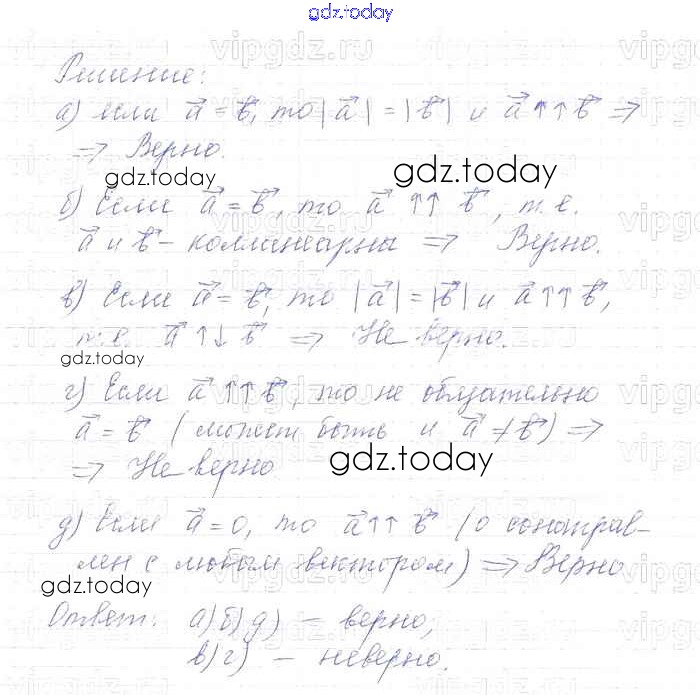 gdz.today
Решение:
а) если a⃗ = b⃗, то |a⃗| = |b⃗| и a⃗ ↑↑ b⃗ ⇒
⇒ Верно.
gdz.today gdz.today
б) Если a⃗ = b⃗, то a⃗ ↑↑ b⃗, т.е.
a⃗ и b⃗ - коллинеарны ⇒ Верно.
в) Если a⃗ = b⃗, то |a⃗| = |b⃗| и a⃗ ↑↑ b⃗,
т.е. a⃗ ↑↓ b⃗ ⇒ Не верно.
gdz.today
г) Если a⃗ ↑↑ b⃗, то не обязательно
a⃗ = b⃗ (может быть и a⃗ ≠ b⃗) ⇒
⇒ Не верно
gdz.today
д) Если a⃗ = 0, то a⃗ ↑↑ b⃗ (0 сонаправ-
лен с любым вектором) ⇒ Верно
gdz.today
Ответ: а) б) д) – верно;
в) г) – неверно.
vipgdz.ru